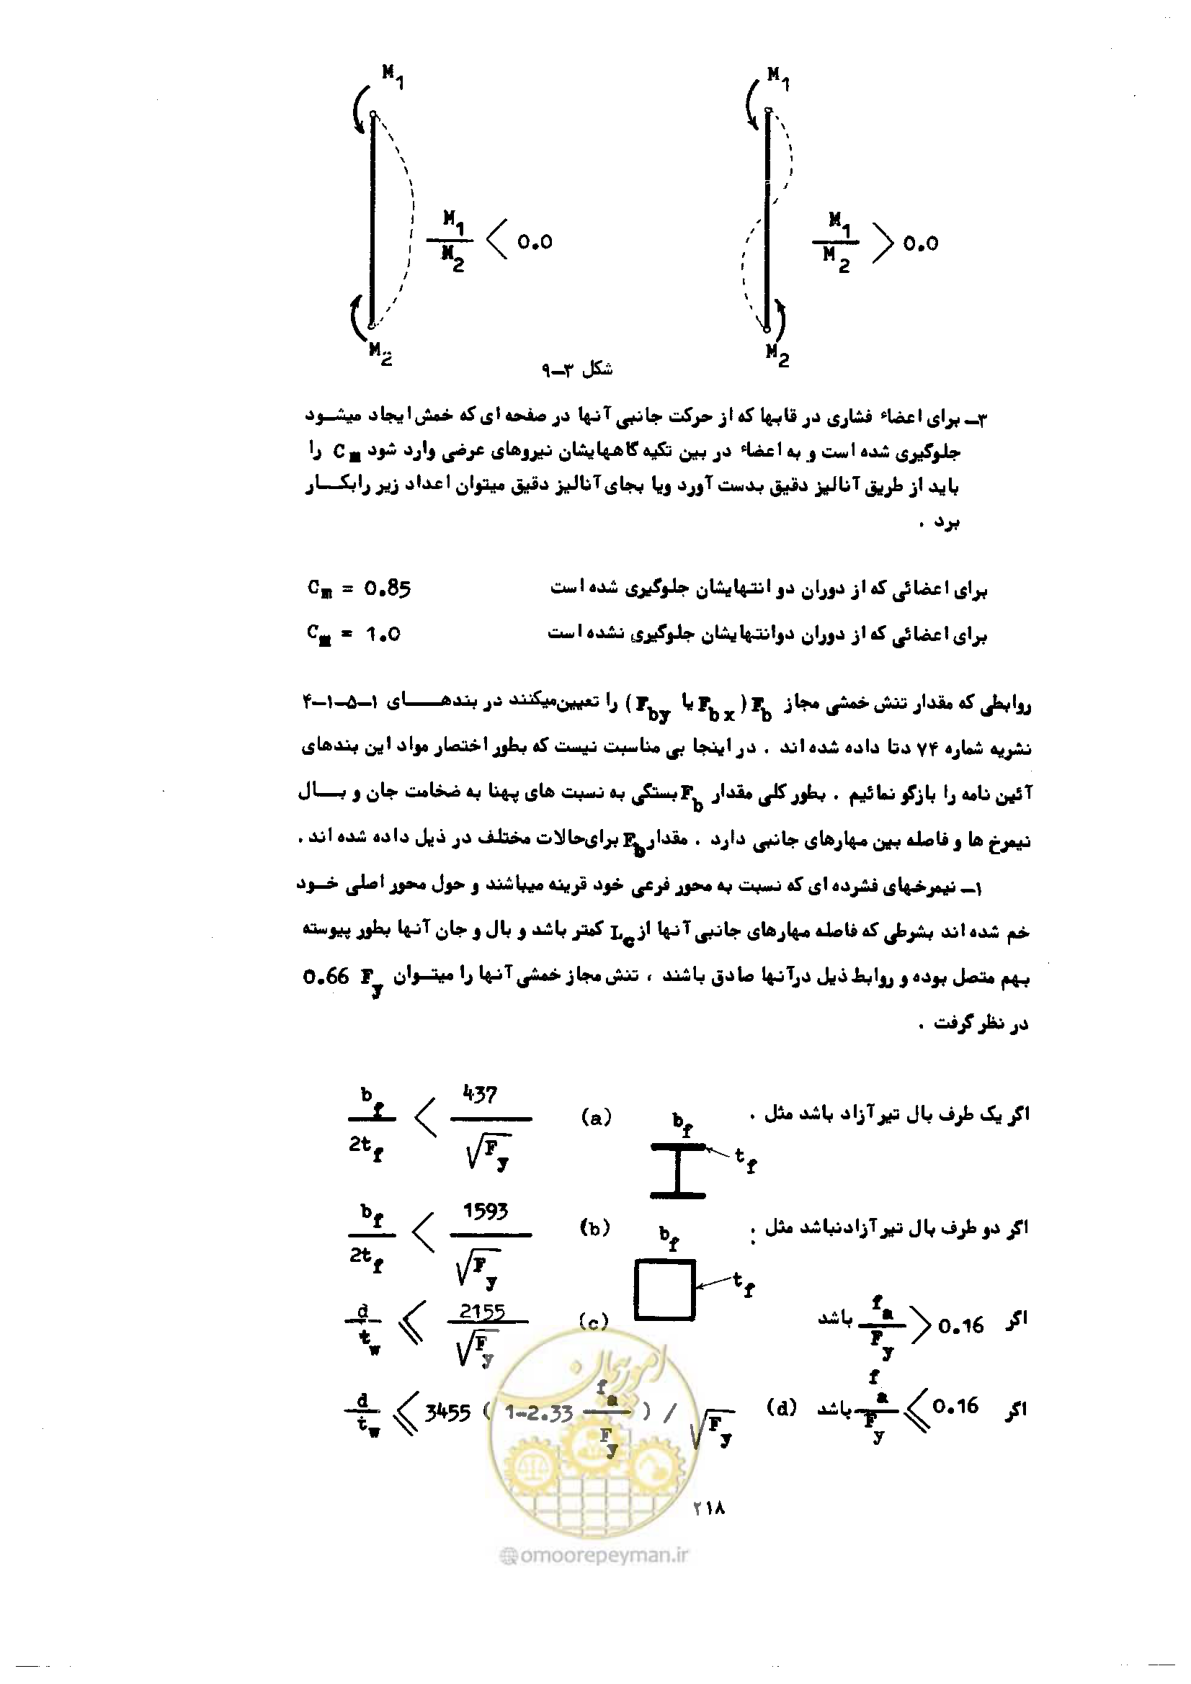 M₁
M₁
M₁/M₂ < 0.0
M₁/M₂ > 0.0
M₂
M₂
شکل ۳-۹
۳- برای اعضاء فشاری در قابها که از حرکت جانبی آنها در صفحه ای که خمش ایجاد میشود
جلوگیری شده است و به اعضاء در بین تکیه گاههایشان نیروهای عرضی وارد شود Cm را
باید از طریق آنالیز دقیق بدست آورد ویا بجای آنالیز دقیق میتوان اعداد زیر رابکار
برد .
برای اعضائی که از دوران دو انتهایشان جلوگیری شده است Cm = 0.85
برای اعضائی که از دوران دوانتهایشان جلوگیری نشده است Cm = 1.0
روابطی که مقدار تنش خمشی مجاز Fb (Fbx یا Fby) را تعیین‌میکنند در بندهای ۱-۵-۱-۴
نشریه شماره ۷۴ دتا داده شده اند . در اینجا بی مناسبت نیست که بطور اختصار مواد این بندهای
آئین نامه را بازگو نمائیم . بطور کلی مقدار Fb بستگی به نسبت های پهنا به ضخامت جان و بال
نیمرخ ها و فاصله بین مهارهای جانبی دارد . مقدار Fb برای‌حالات مختلف در ذیل داده شده اند .
۱- نیمرخهای فشرده ای که نسبت به محور فرعی خود قرینه میباشند و حول محور اصلی خود
خم شده اند بشرطی که فاصله مهارهای جانبی آنها از Lc کمتر باشد و بال و جان آنها بطور پیوسته
بهم متصل بوده و روابط ذیل درآنها صادق باشند ، تنش مجاز خمشی آنها را میتوان 0.66 Fy
در نظر گرفت .
اگر یک طرف بال تیر آزاد باشد مثل . (a) bf/2tf < 437/√Fy
bf
tf
اگر دو طرف بال تیر آزادنباشد مثل : (b) bf/2tf < 1593/√Fy
bf
tf
اگر fa/Fy > 0.16 باشد (c) d/tw ≤ 2155/√Fy
اگر fa/Fy ≤ 0.16 باشد (d) d/tw ≤ 3455 ( 1-2.33 fa/Fy ) / √Fy
امور پیمان
۲۱۸
@omoorepeyman.ir